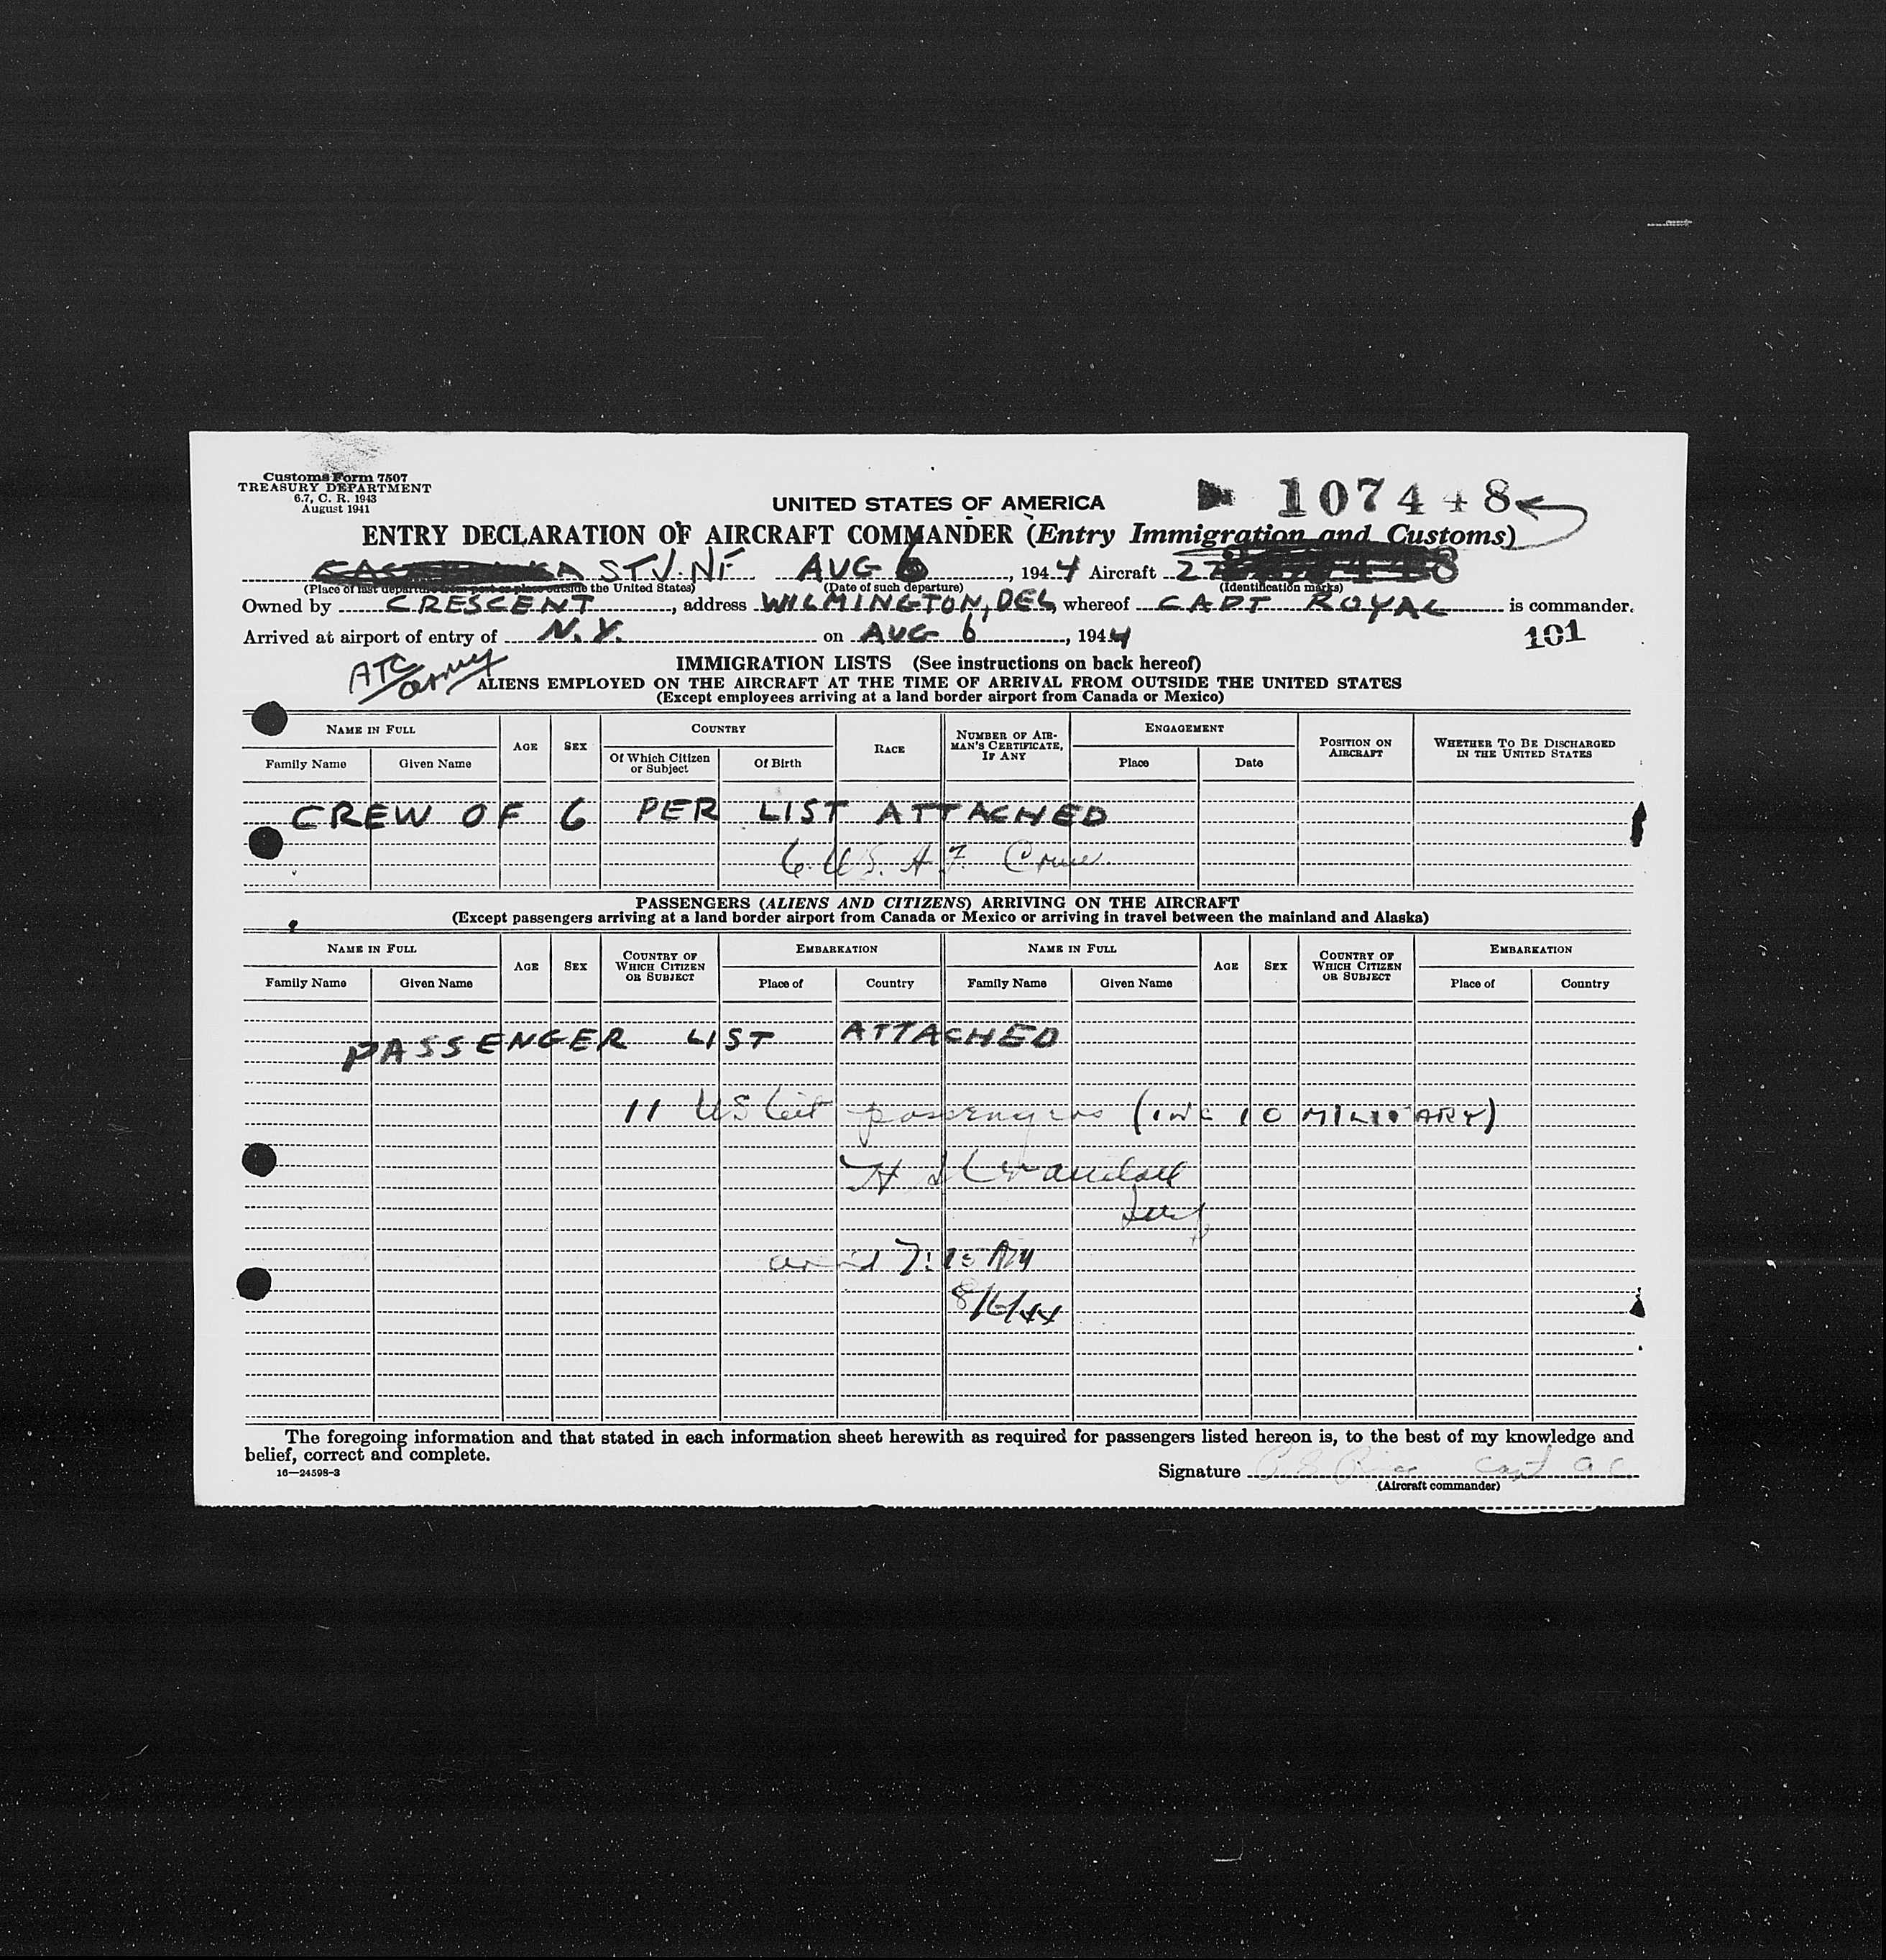 Customs Form 7507
TREASURY DEPARTMENT
6.7, C. R. 1943
August 1941
107448
UNITED STATES OF AMERICA
ENTRY DECLARATION OF AIRCRAFT COMMANDER (Entry Immigration and Customs)
STJ. NF AUG 6, 1944 Aircraft
(Place of last departure from port or place outside the United States) (Date of such departure) (Identification marks)
Owned by CRESCENT, address WILMINGTON, DEL, whereof CAPT ROYAL is commander.
Arrived at airport of entry of N.Y. on AUG 6, 1944
101
ATC
army
IMMIGRATION LISTS (See instructions on back hereof)
ALIENS EMPLOYED ON THE AIRCRAFT AT THE TIME OF ARRIVAL FROM OUTSIDE THE UNITED STATES
(Except employees arriving at a land border airport from Canada or Mexico)
NAME IN FULL AGE SEX COUNTRY RACE NUMBER OF AIRMAN'S CERTIFICATE, IF ANY ENGAGEMENT POSITION ON AIRCRAFT WHETHER TO BE DISCHARGED IN THE UNITED STATES
Family Name Given Name Of Which Citizen or Subject Of Birth Place Date
CREW OF 6 PER LIST ATTACHED
6 U.S. A F. Crew
PASSENGERS (ALIENS AND CITIZENS) ARRIVING ON THE AIRCRAFT
(Except passengers arriving at a land border airport from Canada or Mexico or arriving in travel between the mainland and Alaska)
NAME IN FULL AGE SEX COUNTRY OF WHICH CITIZEN OR SUBJECT EMBARKATION NAME IN FULL AGE SEX COUNTRY OF WHICH CITIZEN OR SUBJECT EMBARKATION
Family Name Given Name Place of Country Family Name Given Name Place of Country
PASSENGER LIST ATTACHED
11 US Cit passengers (INC 10 MILITARY)
7:15 AM
8/6/44
The foregoing information and that stated in each information sheet herewith as required for passengers listed hereon is, to the best of my knowledge and
belief, correct and complete.
16—24598-3
Signature Capt A C
(Aircraft commander)